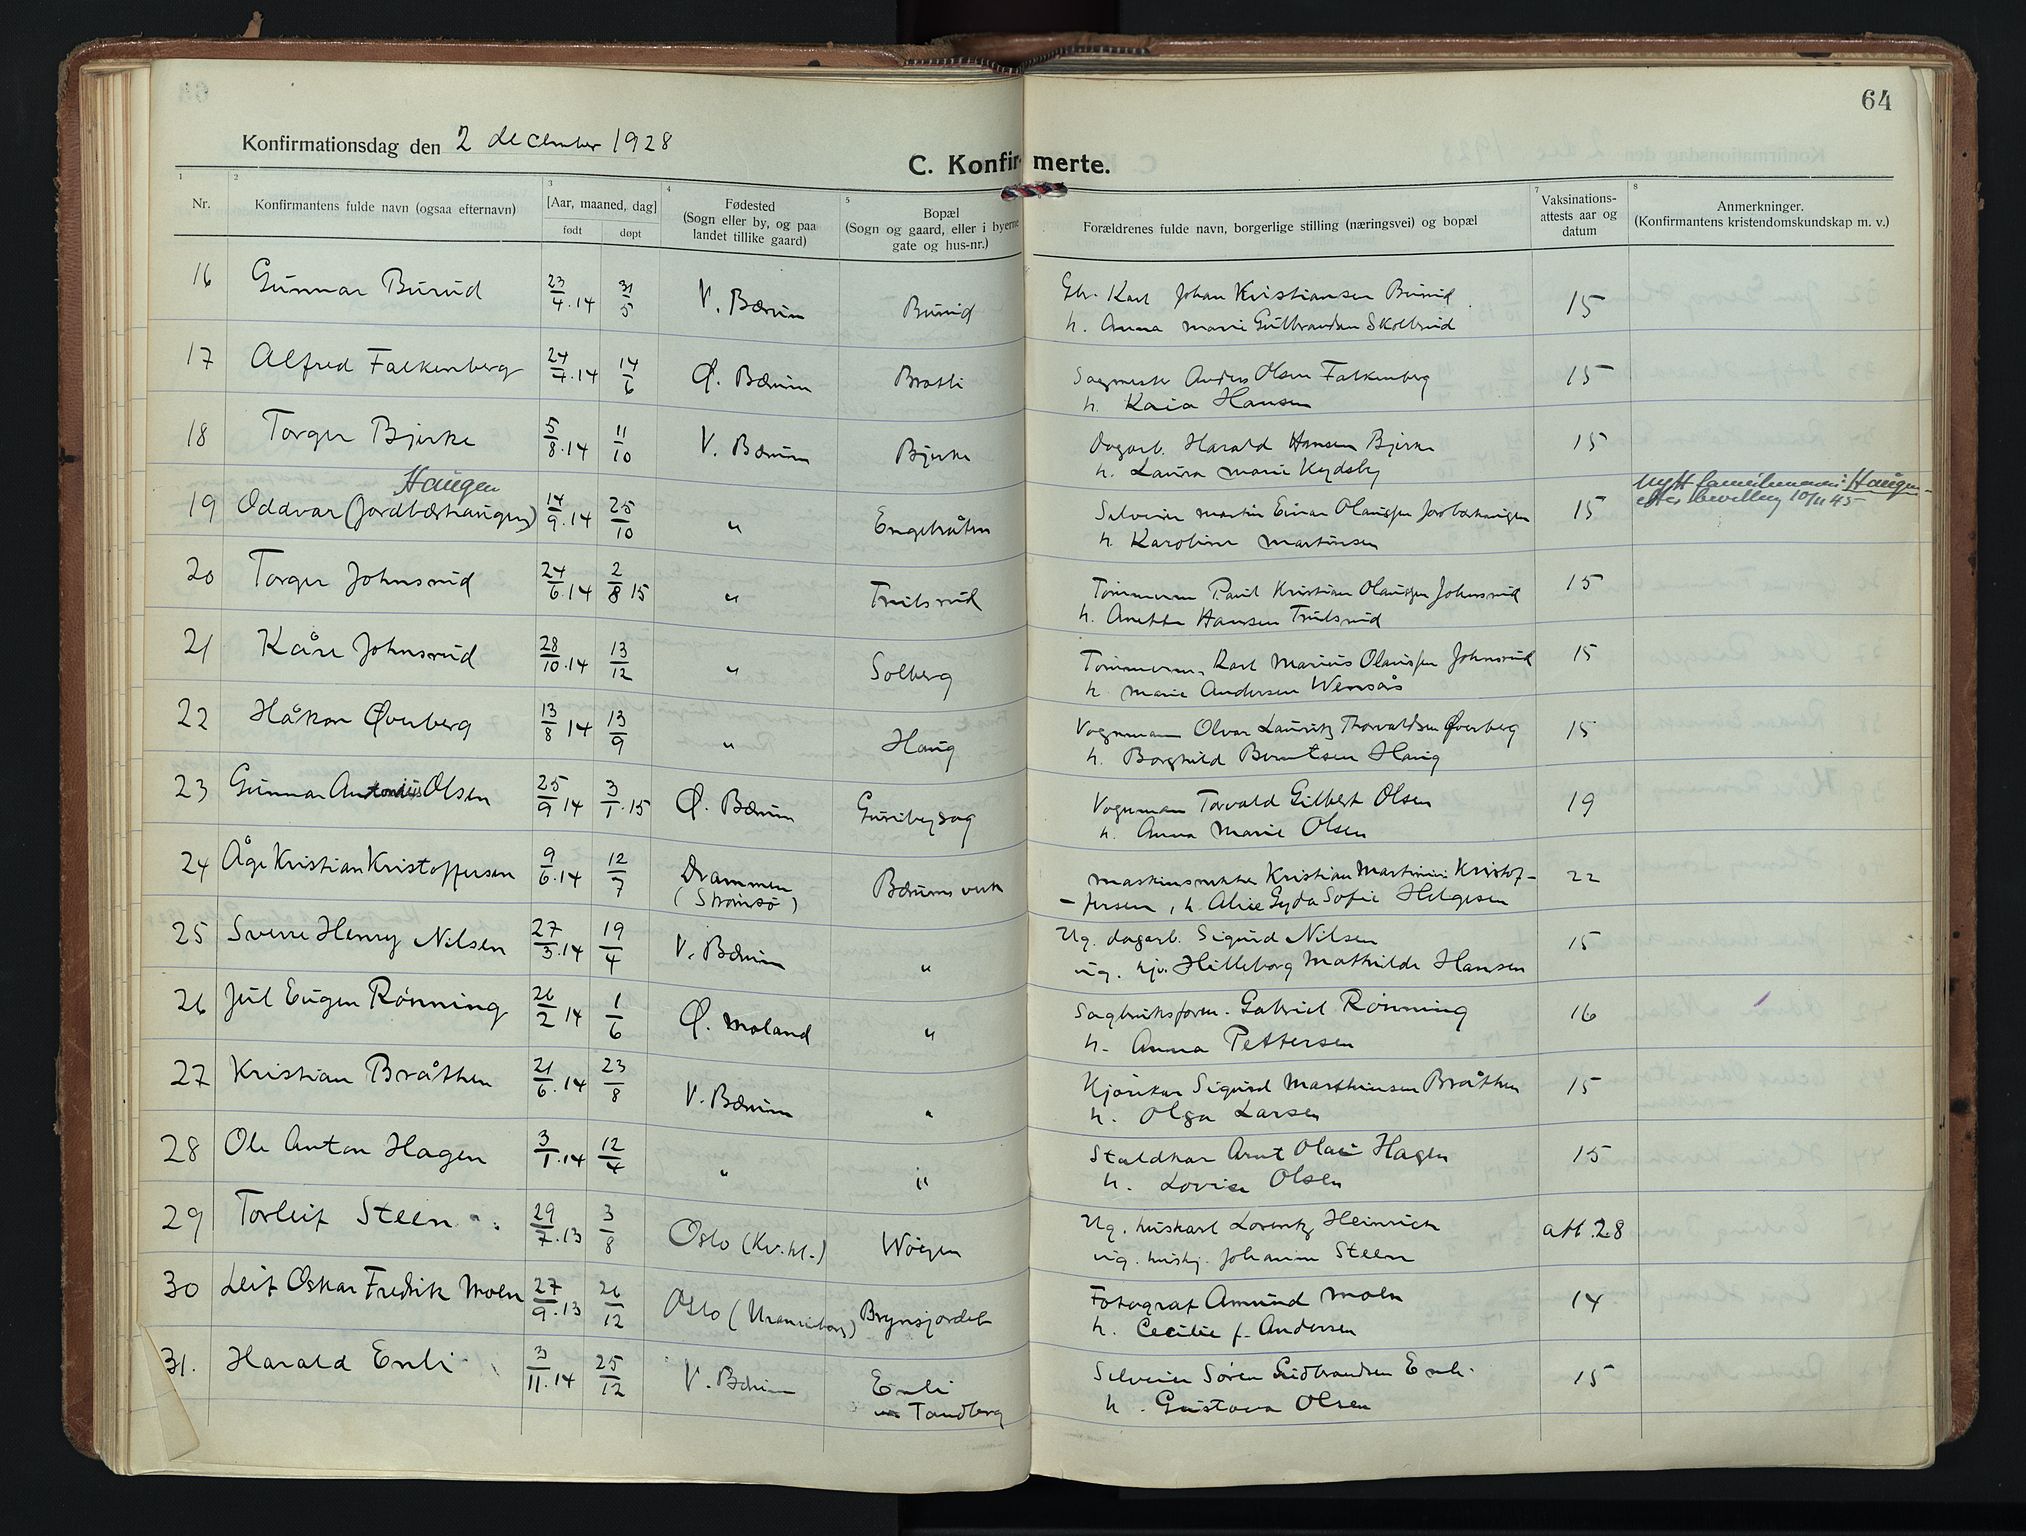 64
Konfirmationsdag den 2 december 1928
C. Konfirmerte.
1 2 3 4 5 7 8
Nr. Konfirmantens fulde navn (ogsaa efternavn) [Aar, maaned, dag] født døpt Fødested (Sogn eller by, og paa landet tillike gaard) Bopæl (Sogn og gaard, eller i byerne gate og hus-nr.) Forældrenes fulde navn, borgerlige stilling (næringsvei) og bopæl Vaksinations-attests aar og datum Anmerkninger. (Konfirmantens kristendomskundskap m. v.)
16 Gunnar Burud 23/4.14 31/5 V. Bærum Burud Gbr. Karl Johan Kristiansen Burud 15
h. Anna Marie Gulbrandsen Skollerud
17 Alfred Falkenberg 24/4.14 14/6 Ø. Bærum Bratli Sagmester Anders Olsen Falkenberg 15
h. Kaia Hansen
18 Torger Bjerke 5/8.14 11/10 V. Bærum Bjerke Dagarb. Harald Hansen Bjerke 15
h. Laura Marie Kydsby
Haugen
19 Oddvar (Jordbærhaugen) 14/9.14 25/10 " Engebråten Selveier Martin Einar Olaussen Jordbærhaugen 15 Nytt familienavn: Haugen
efter bevilling 10/11 45
h. Karoline Martinsen
20 Torger Johnsrud 24/6.14 2/8 15 " Trulsrud Tømmerm Paul Kristian Olaussen Johnsrud 15
h. Anette Hansen Trulsrud
21 Kåre Johnsrud 28/10.14 13/12 " Solberg Tømmerm. Karl Marius Olaussen Johnsrud 15
h. Marie Andersen Wensås
22 Håkon Øverberg 13/8 14 13/9 " Haug Vognmann Olvar Lauritz Thorvaldsen Øverberg 15
h. Borghild Berntsen Haug
23 Gunnar Antonius Olsen 25/9 14 3/1.15 Ø. Bærum Guribysag Vognman Torvald Gilbert Olsen 19
h. Anna Marie Olsen
24 Åge Kristian Kristoffersen 9/6.14 12/7 Drammen (Strømsø) Bærums verk Maskinsmikker Kristian Martinius Kristof- 22
-fersen, h. Alice Gyda Sofie Helgesen
25 Sverre Henry Nilsen 27/3.14 19/4 V. Bærum " Ug. dagarb. Sigurd Nilsen 15
ug. hjv. Hilleborg Mathilde Hansen
26 Jul Eugen Rønning 26/2 14 1/6 Ø. Moland " Sagbruksform. Gabriel Rønning 16
h. Anna Pettersen
27 Kristian Bråthen 21/6.14 23/8 V. Bærum " Kjørekar Sigurd Marthinsen Bråthen 15
h. Olga Larsen
28 Ole Anton Hagen 3/1.14 12/4 " " Staldkar Arnt Olai Hagen 15
h. Lovise Olsen
29 Torleif Steen 29/7.13 3/8 Oslo (Kv.kl.) Wøyen Ug. huskarl Lorentz Heinrich att. 28
ug. hushj. Johanne Steen
30 Leif Oskar Fredrik Moen 27/9.13 26/12 Oslo (Uranienborg) Brynsjordet Fotograf Amund Moen 14
h. Cecilie f. Andersen
31. Harald Enli 3/11.14 25/12 V. Bærum Enli Selveier Søren Guldbrandsen Enli 15
u. Tandberg h. Gustava Olsen